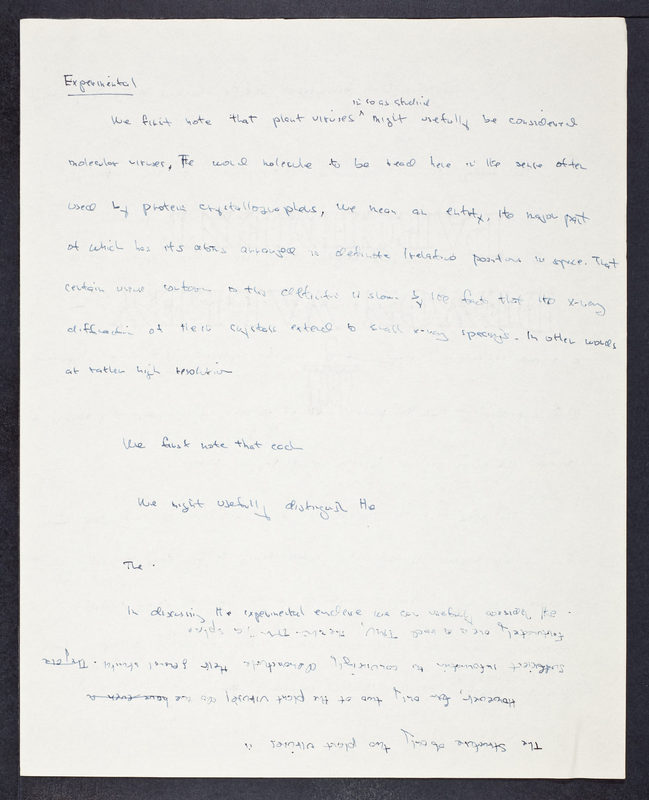 Experimental
in so as studied
We first note that plant viruses ^ might usefully be considered
molecular viruses. The word molecule to be read here in the sense often
used by protein crystallographers. We mean an entity, the major part
of which has its atoms arranged in definite (relative) positions in space. That
certain viruses conform to this definition is shown by the fact that the x-ray
diffraction of their crystals extend to small x-ray spacings. In other words
at rather high resolution
We first note that each
We might usefully distinguish the
The.
In discussing the experimental evidence we can usefully
Fortunately
sufficient information to convincingly their general structure. They are
However, for only two of the plant viruses, do we have even a
The structure of only two plant viruses is